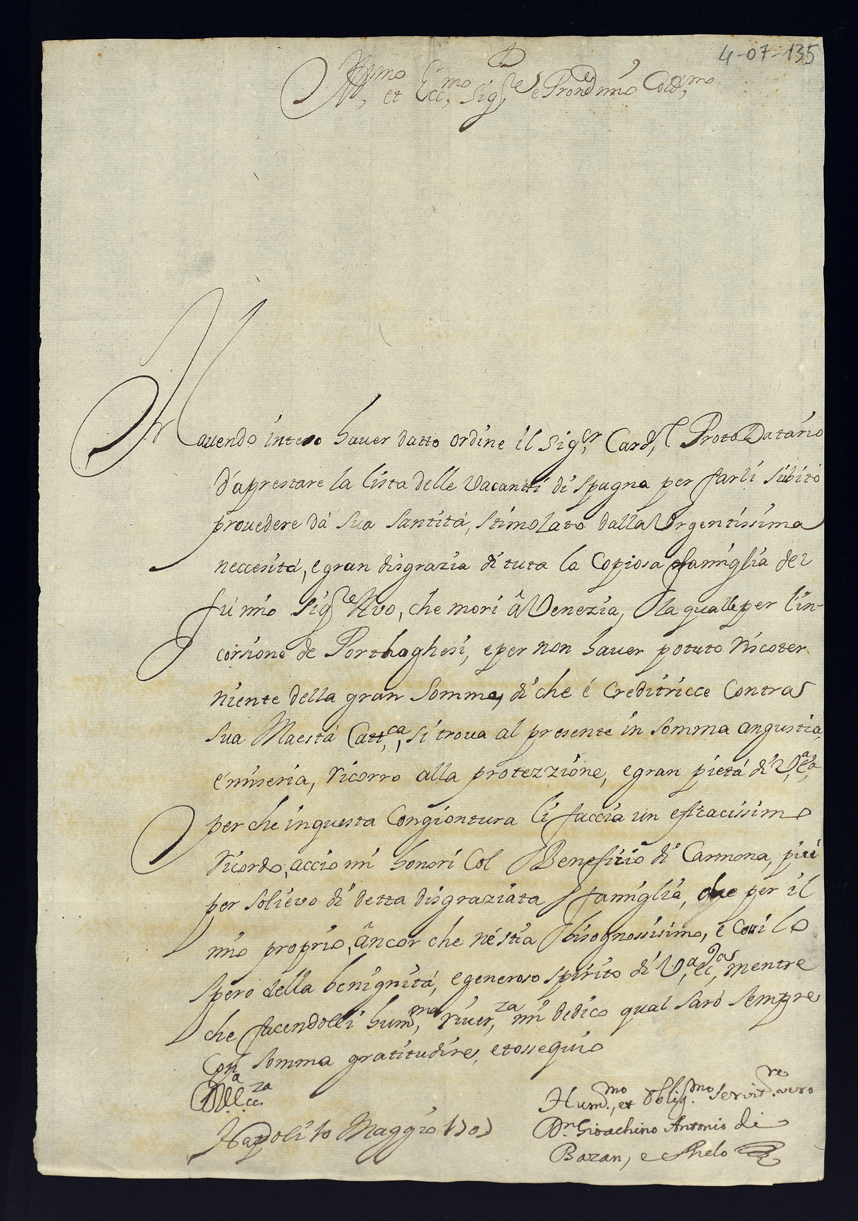 4-07-135
Ill,mo et Ecc,mo Sig,re e Prone mio Coll,mo
Hauendo inteso hauer datto ordine il Sig,r Card,l ProtoDatario
d'aprestare la lista delle Vacanti di Spagna per farli subito
prouedere dá Sua Santitá, stimolato dalla Vrgentissima
neccesitá, e gran disgrazia di tuta la Copiosa famiglia del
fú mio Sig,re Auo, che morí â Venezia, la qualle per l'in-
corsione de Porthoghesi, e per non hauer potuto riscoter
niente della gran Somma, di che é Creditricce Contra
sua Maestá Catt,ca, si troua al presente in somma angustia,
e miseria, ricorro alla protezzione, e gran pietá di V,a E,a,
perche in questa Congiontura li faccia un eficacissimo
ricordo, accio mi honori Col Beneficio di Carmona, piú
per solievo di detta disgraziata famiglia, che per il
mio proprio, âncor che né stia bisognossisimo, e Cosi lo
spero della benignitá, e generoso spirito di V,a Ecc,a, mentre
che facendolli hum,ma riuer,za, mi dedico qual saró sempre
Con somma gratitudine, et ossequio
D V,a Ecc,za
Napoli 10 Maggio 1707
Hum,mo, et Oblig,mo Servit,re vero
Dn Gioachino Antonio de
Bazan, e Melo